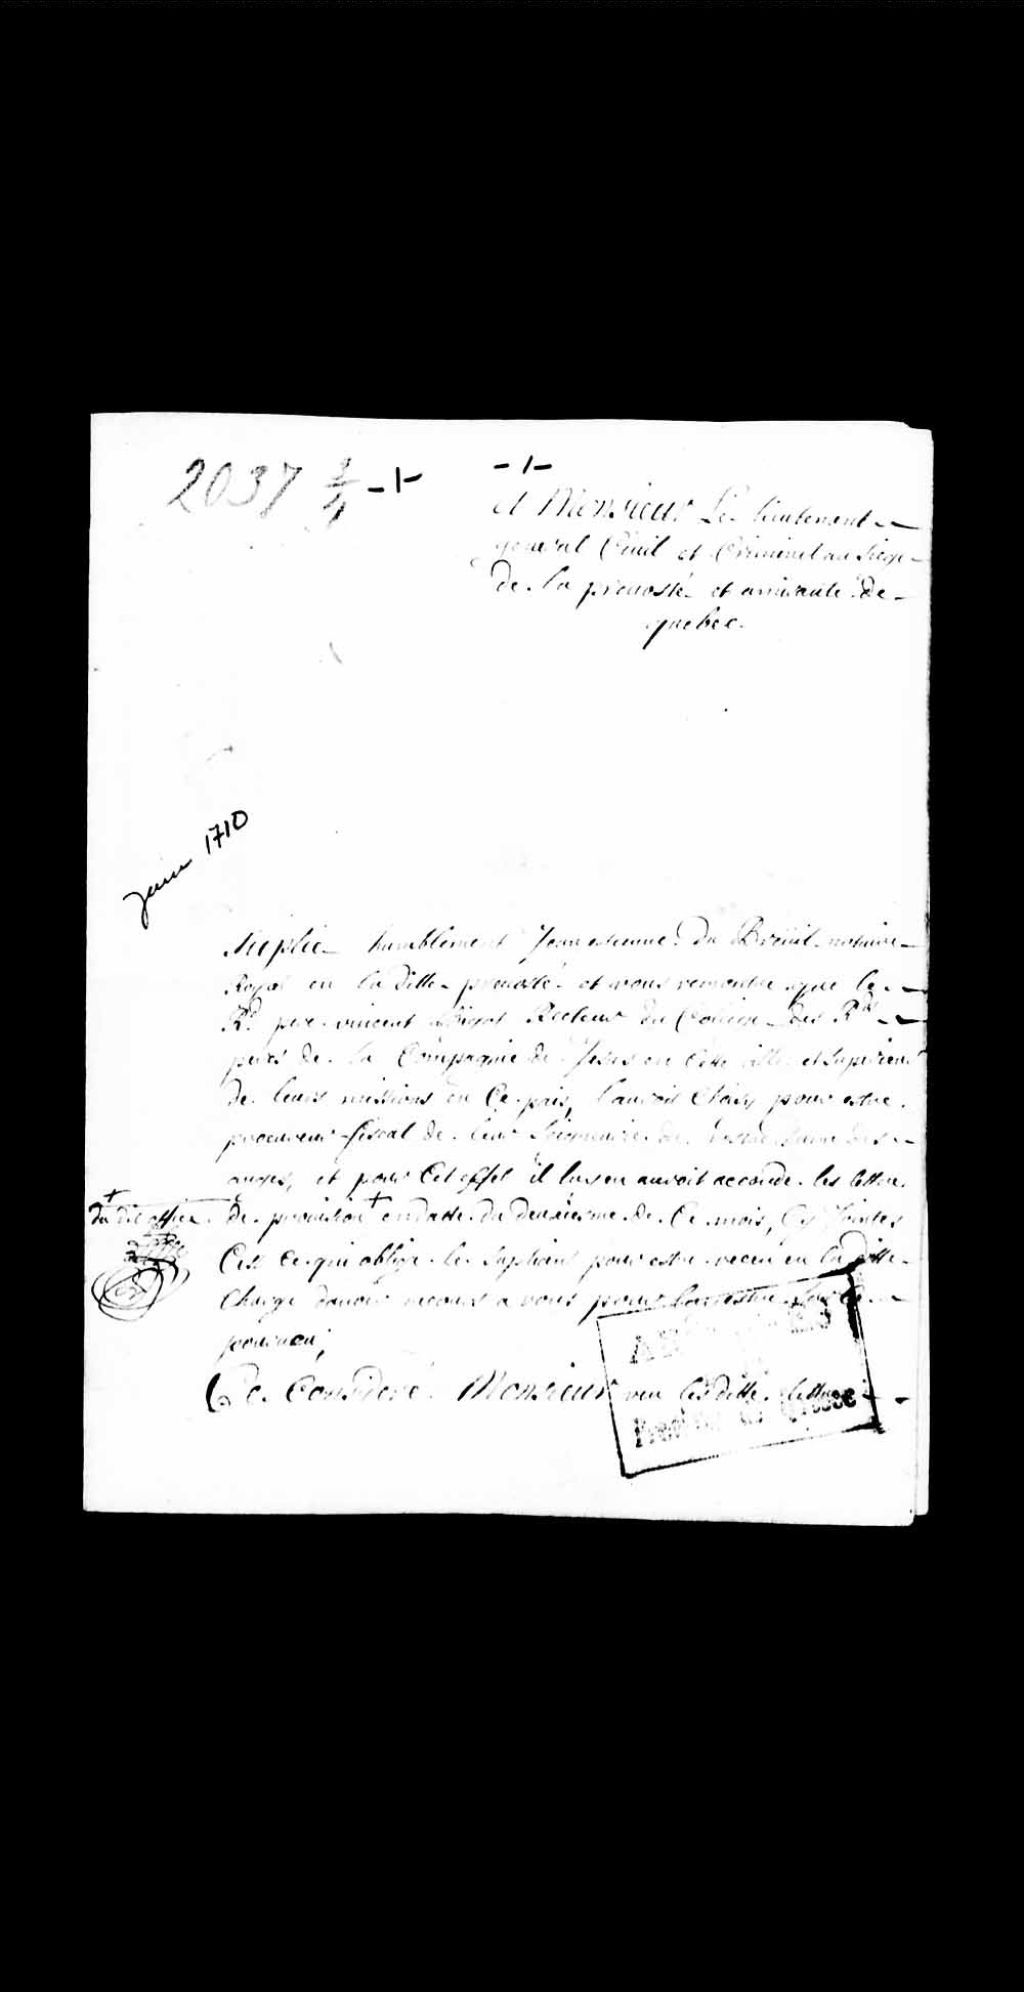 2037 3/4 -1-
-1-
A Monsieur Le lieutenant
general Ciuil et Criminel au siege
de la preuosté et amirauté de
quebec.
juin 1710
Suplie humblement Jean estienne du Breüil notaire
Royal en la ditte preuosté et vous remontre que le
Rd. pere vincent Bigot Recteur du College des Rds
peres de la Compagnie de Jesus en Cette ville et superieur
de leurs missions en Ce païs, l'auroit Choisy pour estre
procureur fiscal de leur Seigneurie de nostre dame des
anges, et pour Cet effet il luy en auroit accordé les lettres
de prouision + en datte du deuxiesme de Ce mois, Cy Jointes
+ du dit office
C'est ce qui oblige le supliant pour estre receu en la ditte
Charge d'auoir recours a vous pour luy estre sur Ce
pourueu,
Ce Consideré Monsieur veu les ditte lettres
ARCHIVES
Province de Quebec